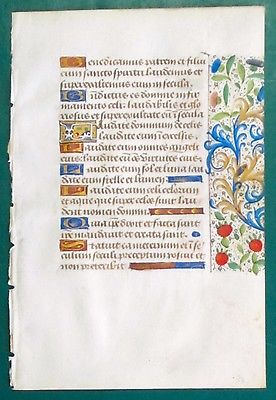 Benedicamus patrem et filiu
cum sancto spiritu laudemus et
superexaltemus eum in secula.
Benedictus es domine in fir
mamento celi: laudabilis et glo
riosus et superexaltatus in secula
Laudate dominum de celis
laudate eum in excelsis.
Laudate eum omnes angeli
eius: laudate eum oes virtutes eius.
Laudate eum sol et luna lau
date eum stelle et lumen.
Laudate eum celi celorum
et aque que super celos sunt lau
dent nomen domini.
Quia ipse dixit et facta sunt
ipe mandavit et creata sunt.
Statuit ea in eternum et in se
culum seculi preceptum posuit et
non preteribit